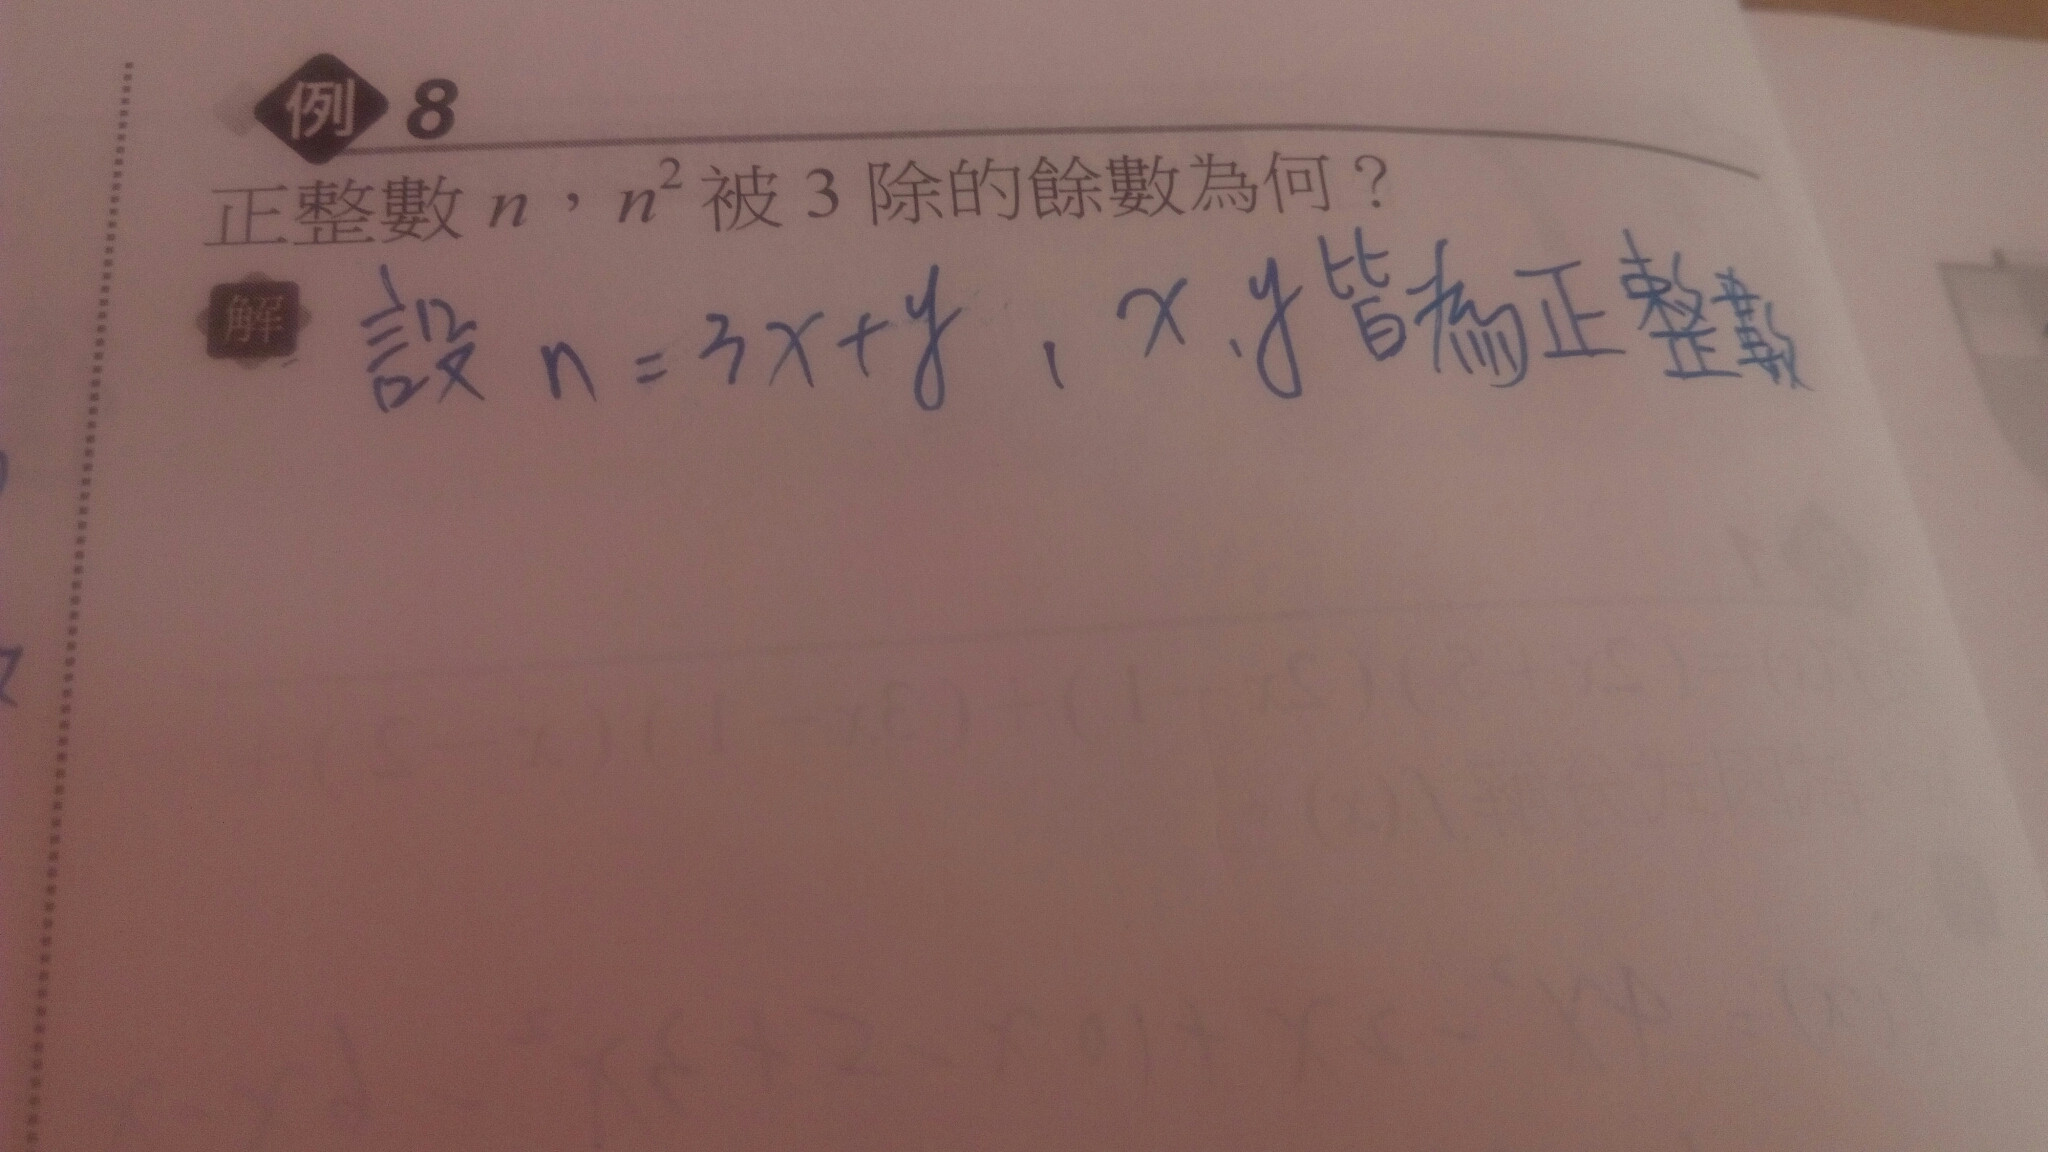 例 8
正整數 n，n² 被 3 除的餘數為何？
解 設 n = 3x + y , x、y皆為正整數